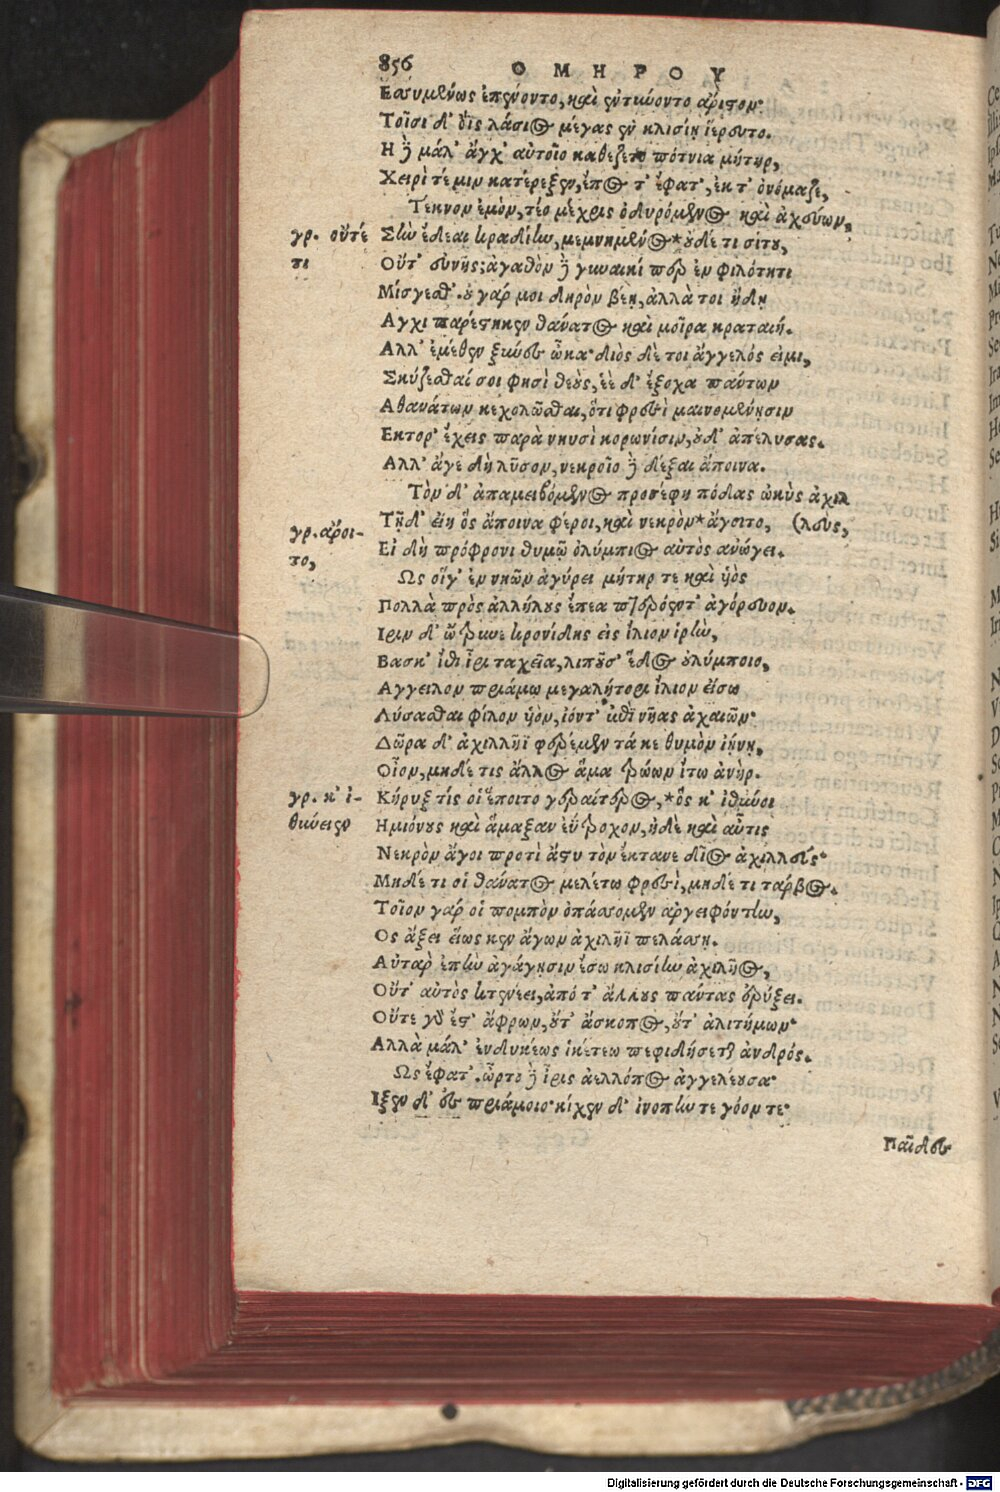 856 ΟΜΗΡΟΥ
Εσσυμένως ἐπένοντο, καὶ ἐντύνοντο ἄριστον·
Τοῖσι δ' ὄϊς λάσιος μέγας ἐν κλισίῃ ἱέρευτο.
Η δὲ μάλ' ἄγχ' αὐτοῖο καθέζετο πότνια μήτηρ,
Χειρί τέ μιν κατέρεξεν, ἔπος τ' ἔφατ', ἐκ τ' ὀνόμαζε,
Τέκνον ἐμὸν, τέο μέχρις ὀδυρόμενος καὶ ἀχεύων,
γρ. οὔτέ Σὴν ἔδεαι κραδίην, μεμνημένος * οὐδέ τι σίτου,
τι Οὔτ' εὐνῆς; ἀγαθὸν δὲ γυναικί περ ἐν φιλότητι
Μίσγεσθ'. οὐ γάρ μοι δηρὸν βέῃ, ἀλλά τοι ἤδη
Αγχι παρέστηκεν θάνατος καὶ μοῖρα κραταιή.
Αλλ' ἐμέθεν ξύνες ὦκα· διὸς δέ τοι ἄγγελός εἰμι,
Σκύζεσθαί σοι φησὶ θεοὺς, ἑὲ δ' ἔξοχα πάντων
Αθανάτων κεχολῶσθαι, ὅτι φρεσὶ μαινομένῃσιν
Εκτορ' ἔχεις παρὰ νηυσὶ κορωνίσιν, οὐδ' ἀπέλυσας.
Αλλ' ἄγε δὴ λῦσον, νεκροῖο δὲ δέξαι ἄποινα.
Τὸν δ' ἀπαμειβόμενος προσέφη πόδας ὠκὺς ἀχιλ
γρ. ἄροι- Τῇδ' εἴη ὃς ἄποινα φέροι, καὶ νεκρὸν * ἄγοιτο, (λεύς,
το, Εἰ δὴ πρόφρονι θυμῷ ὀλύμπιος αὐτὸς ἀνώγει.
Ως οἵγ' ἐν νηῶν ἀγύρει μήτηρ τε καὶ υἱὸς
Πολλὰ πρὸς ἀλλήλους ἔπεα πτερόεντ' ἀγόρευον.
Ιριν δ' ὤτρυνε κρονίδης εἰς ἴλιον ἱρὴν,
Βασκ' ἴθι ἶρι ταχεῖα, λιποῦσ' ἕδος οὐλύμποιο,
Αγγειλον πριάμῳ μεγαλήτορι ἴλιον εἴσω
Λύσασθαι φίλον υἱὸν, ἰόντ' ἐπὶ νῆας ἀχαιῶν·
Δῶρα δ' ἀχιλλῆϊ φερέμεν τά κε θυμὸν ἰήνῃ,
Οἶον, μηδέ τις ἄλλος ἅμα τρώων ἴτω ἀνήρ.
γρ. κ' ἰ- Κήρυξ τίς οἱ ἕποιτο γεραίτερος, * ὅς κ' ἰθύνοι
θύνεισεν Ημιόνους καὶ ἅμαξαν ἐΰτροχον, ἠδὲ καὶ αὖτις
Νεκρὸν ἄγοι προτὶ ἄστυ τὸν ἔκτανε δῖος ἀχιλλεύς·
Μηδέ τι οἱ θάνατος μελέτω φρεσὶ, μηδέ τι τάρβος.
Τοῖον γάρ οἱ πομπὸν ὀπάσσομεν ἀργειφόντην,
Ος ἄξει εἵως κεν ἄγων ἀχιλῆϊ πελάσσῃ.
Αὐτὰρ ἐπὴν ἀγάγῃσιν ἔσω κλισίην ἀχιλῆος,
Οὔτ' αὐτὸς κτενέει, ἀπό τ' ἄλλους πάντας ἐρύξει.
Οὔτε γάρ ἔστ' ἄφρων, οὔτ' ἄσκοπος, οὔτ' ἀλιτήμων·
Αλλὰ μάλ' ἐνδυκέως ἱκέτεω πεφιδήσεται ἀνδρός.
Ως ἔφατ'. ὦρτο δὲ ἶρις ἀελλόπος ἀγγελέουσα·
Ιξεν δ' ἐς πριάμοιο· κίχεν δ' ἐνοπήν τε γόον τε·
Παῖδες
Digitalisierung gefördert durch die Deutsche Forschungsgemeinschaft - DFG